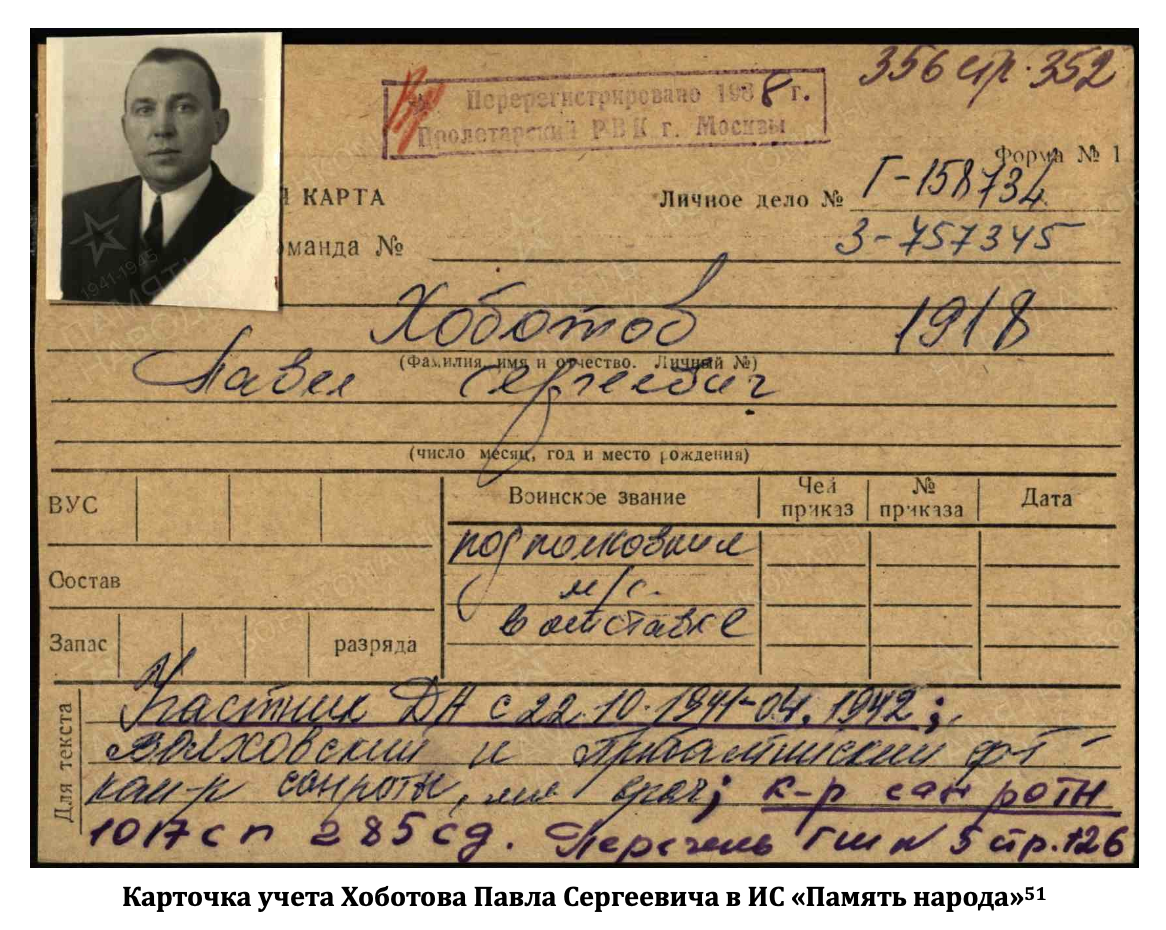 356 стр. 352
Перерегистрировано 1988 г.
Пролетарский РВК г. Москвы
Форма № 1
Я КАРТА
Личное дело № Г-158734
оманда №
З-757345
Хоботов 1918
(Фамилия, имя и отчество. Личный №)
Павел Сергеевич
(число месяц, год и место рождения)
ВУС
Воинское звание
Чей приказ
№ приказа
Дата
подполковник
Состав
м/с.
в отставке
Запас
разряда
Для текста
Участник ДА с 22.10.1941-04.1942;
Волховский и Прибалтийский ф-т
ком-р санроты, врач; к-р сан роты
1017 сп 285 сд. Перечень ГШ № 5 стр. 126
1941-1945
ПАМЯТЬ НАРОДА
Карточка учета Хоботова Павла Сергеевича в ИС «Память народа»51